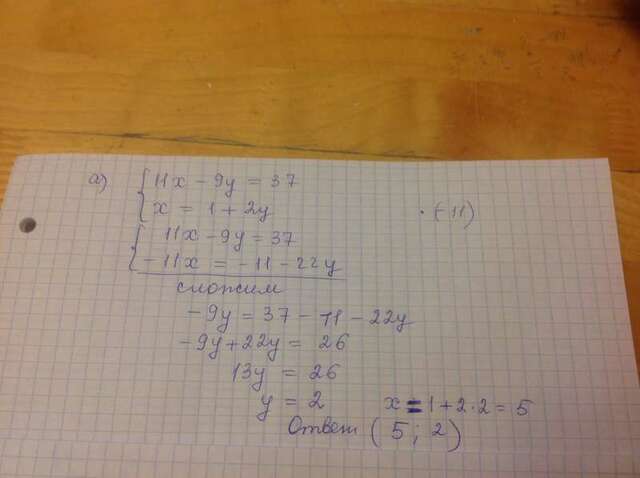 а) 11x - 9y = 37
x = 1 + 2y · (-11)
11x - 9y = 37
-11x = -11 - 22y
сложим
-9y = 37 - 11 - 22y
-9y + 22y = 26
13y = 26
y = 2 x = 1 + 2·2 = 5
Ответ (5; 2)